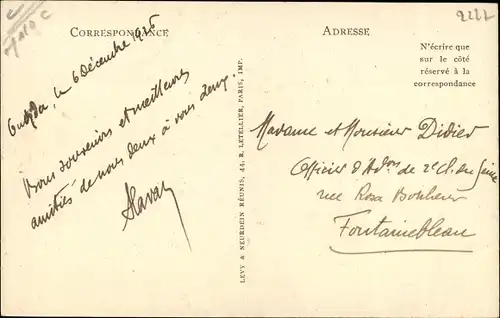 CORRESPONDANCE
Oudjda, le 6 Décembre 1926
Bons souvenirs et meilleures
amitiés de nous deux à vous deux.
ADRESSE
N'écrire que
sur le côté
réservé à la
correspondance
LEVY & NEURDEIN RÉUNIS, 44, R. LETELLIER, PARIS, IMP.
Madame et Monsieur Didier
Officier d'Adon de 2e Cl. en
rue Rosa Bonheur
Fontainebleau